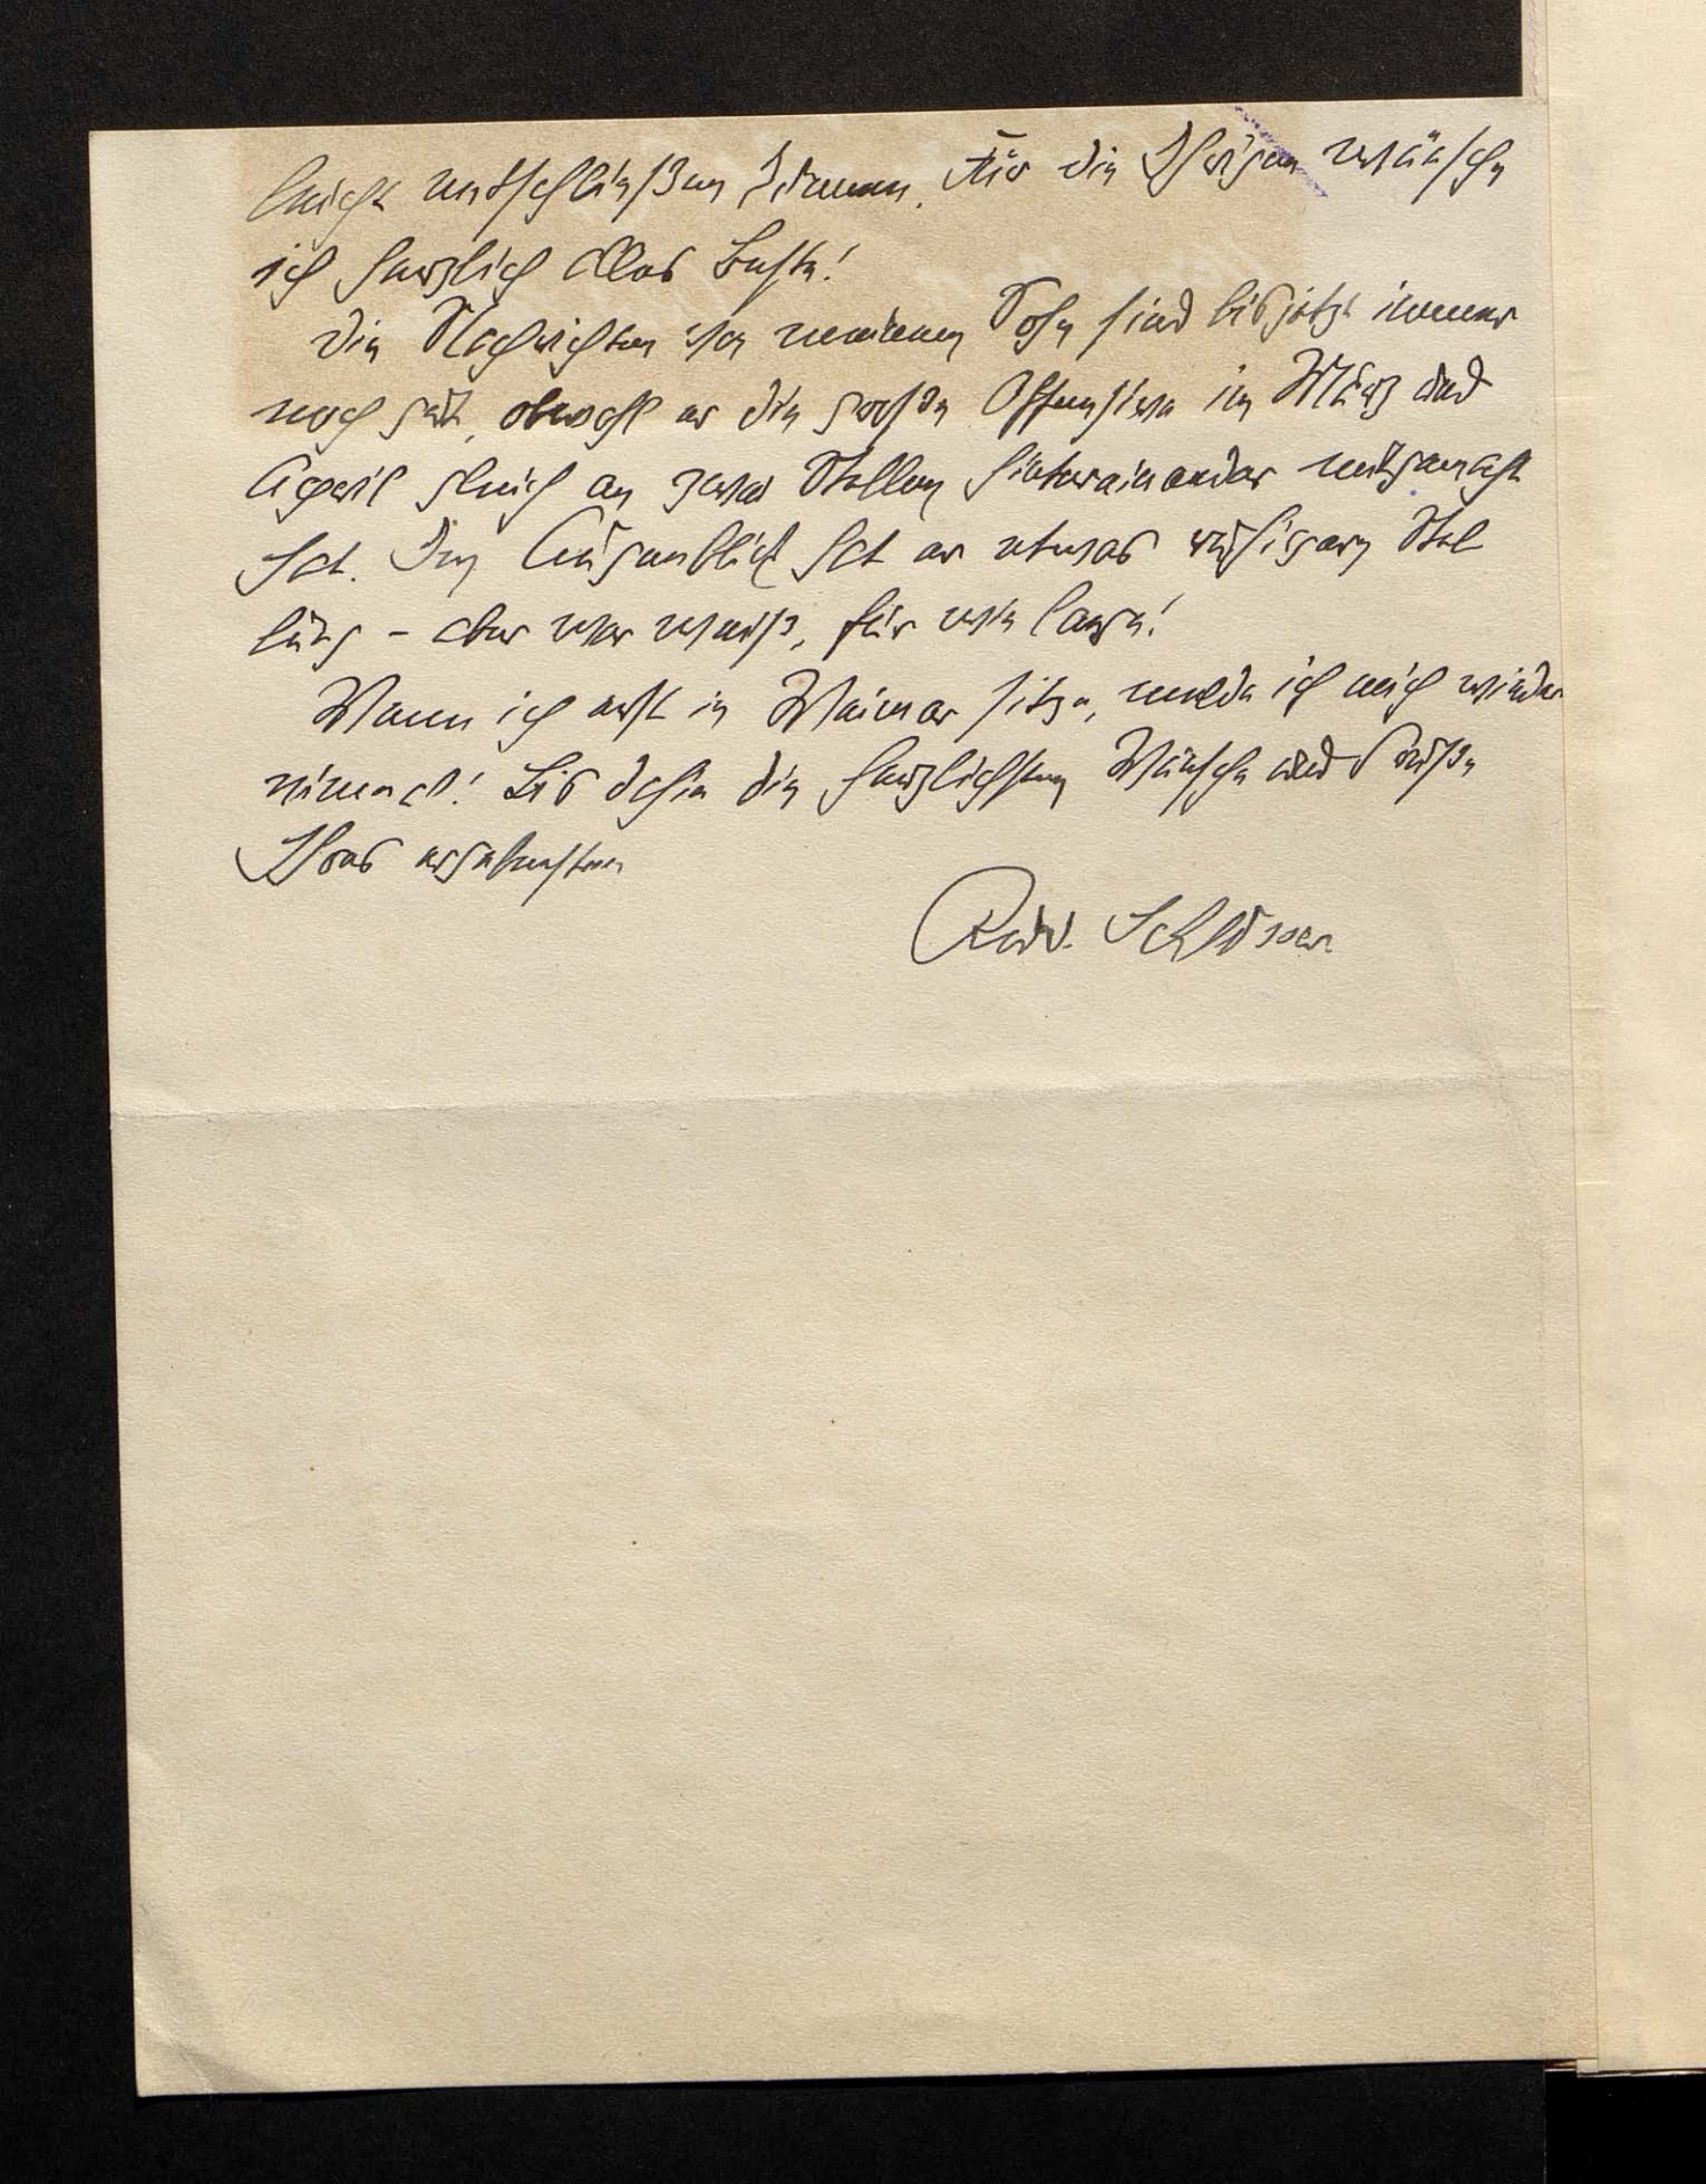 leicht entschließen können. Für die Ihrigen wünsche
ich herzlich alles Beste!
Die Nachrichten von meinem Sohn sind bis jetzt immer
noch gut, obwohl er die große Offensive im März und
April gleich an zwei Stellen hintereinander mitgemacht
hat. Im Augenblick hat er etwas ruhigere Stel
lung – aber wer weiß, für wie lange!
Wenn ich erst in Weimar sitze, melde ich mich wieder
einmal! Bis dahin die herzlichsten Wünsche und Grüße
Ihres ergebensten
Rud. Schlösser